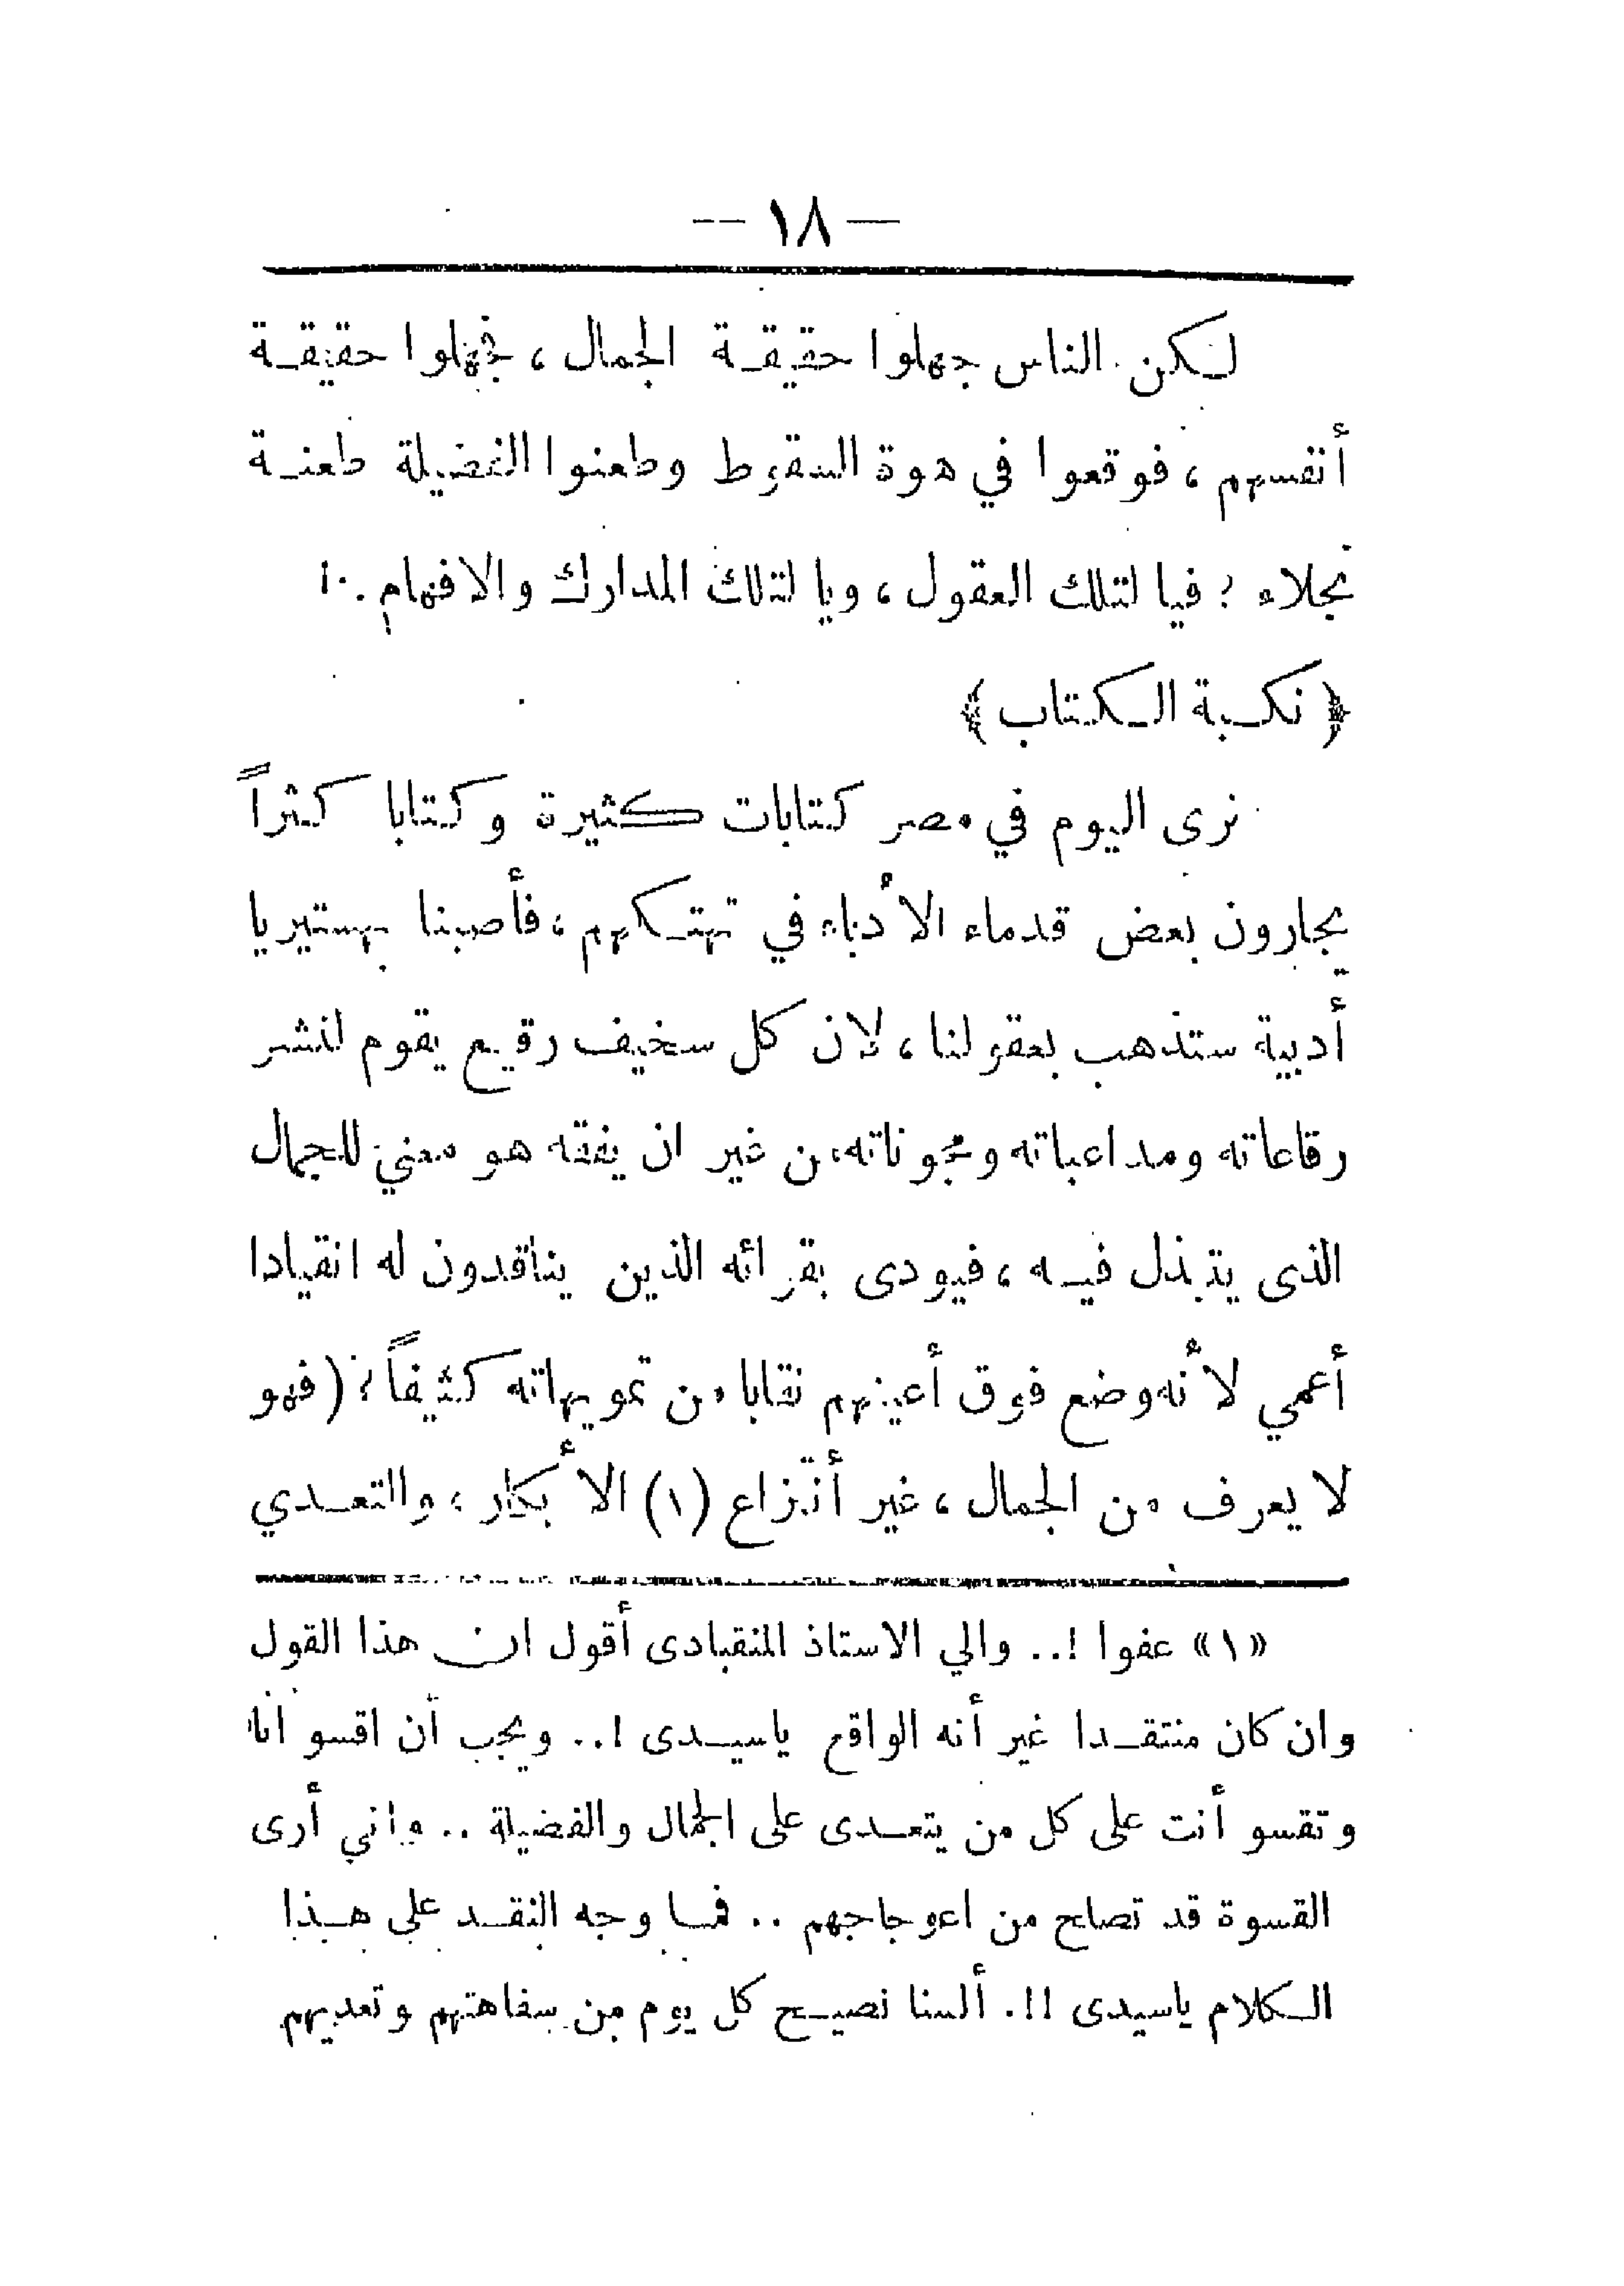 — ١٨ —
لكن الناس جهلوا حقيقة الجمال ، فجهلوا حقيقة
أنفسهم ، فوقعوا في هوة السقوط وطعنوا الفضيلة طعنة
نجلاء ؛ فيا لتلك العقول ، ويا لتلك المدارك والافهام ..!
﴿ نكبة الكتاب ﴾
نرى اليوم في مصر كتابات كثيرة وكتابا كثراً
يجارون بعض قدماء الأدباء في تهتكهم ، فأصبنا بهستيريا
أدبية ستذهب بعقولنا ، لان كل سخيف رقيع يقوم لنشر
رقاعاته ومداعباته ومجوناته من غير ان يفقه هو معني للجمال
الذى يتبذل فيه ، فيودى بقرائه الذين يناقدون له انقيادا
أعمي لأنه وضع فوق أعينهم نقابا من تمويهاته كثيفاً ؛ ( فهو
لا يعرف من الجمال ، غير أنتزاع (١) الأبكار ، والتعدي
«١» عفوا !.. والي الاستاذ المنقبادى أقول ان هذا القول
وان كان منتقدا غير أنه الواقع ياسيدى !.. ويجب أن اقسو انا
وتقسو أنت على كل من يتعدى على الجمال والفضيلة .. واني أرى
القسوة قد تصلح من اعوجاجهم .. فما وجه النقد على هذا
الكلام ياسيدى !!. ألسنا نصيح كل يوم من سفاهتهم وتعديهم